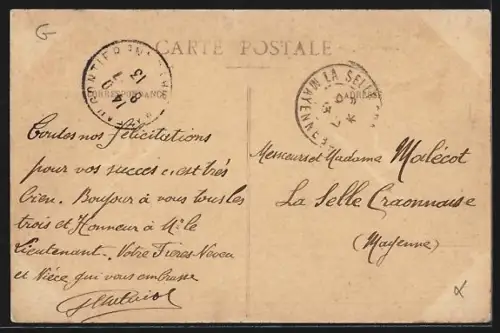 CARTE POSTALE
CORRESPONDANCE
ADRESSE
LA SELLE
MAYENNE
Toutes nos félicitations
pour vos succès c'est très
bien. Boujour à vous tous les
trois et Honneur à Mr le
Lieutenant. Votre Frères Neveu
et Nièce qui vous embrasse
Messieurs et Madame Malécot
La Selle Craonnaise
(Mayenne)